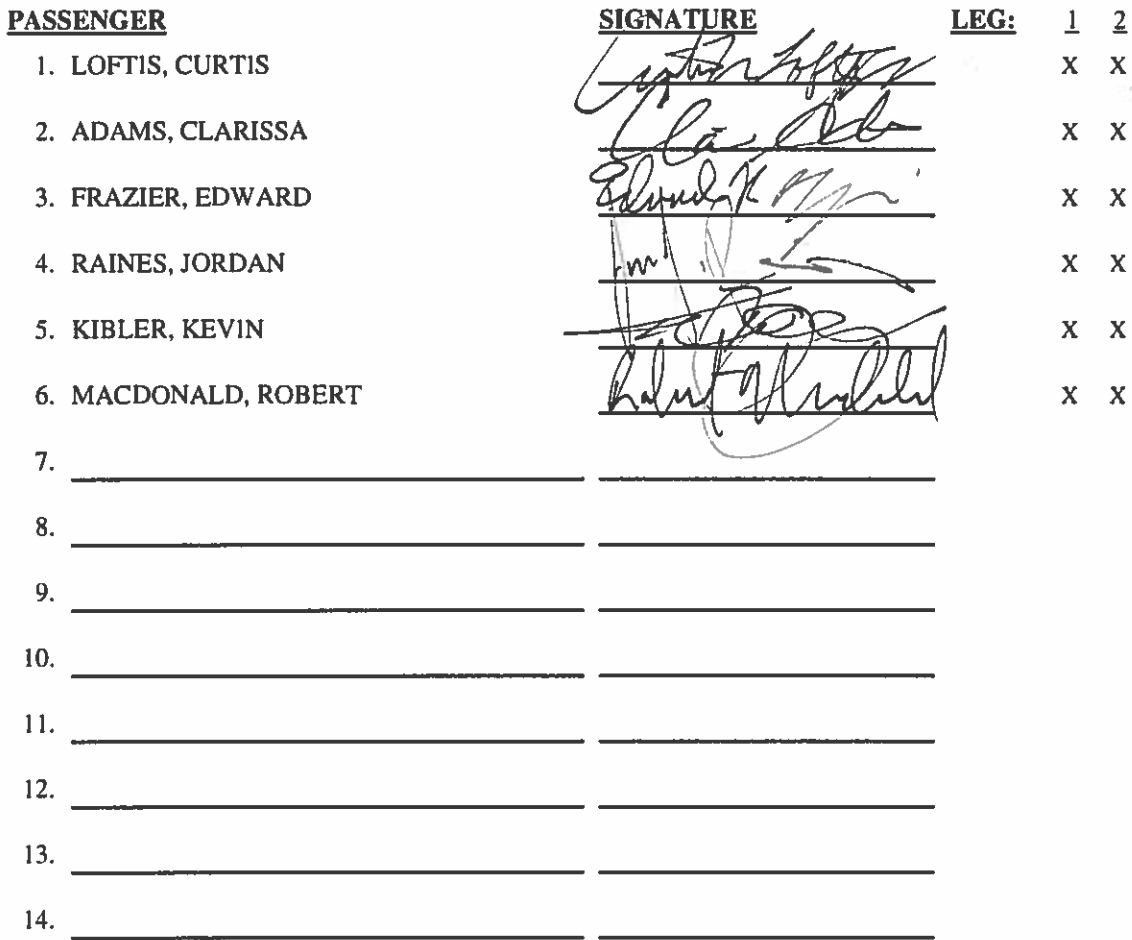 PASSENGER SIGNATURE LEG: 1 2
1. LOFTIS, CURTIS X X
2. ADAMS, CLARISSA X X
3. FRAZIER, EDWARD X X
4. RAINES, JORDAN X X
5. KIBLER, KEVIN X X
6. MACDONALD, ROBERT X X
7.
8.
9.
10.
11.
12.
13.
14.